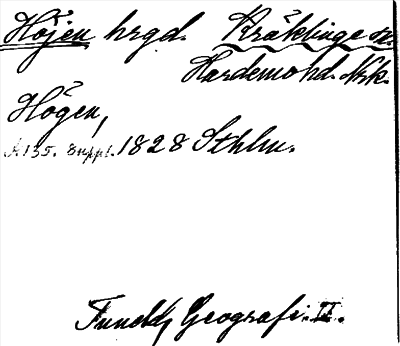 Höjen hrgd. Kräklinge sn.
Hardemo hd. Nrk.
Högen,
A 135. Suppl. 1828 Sthlm.
Tuneld, Geografi. II.